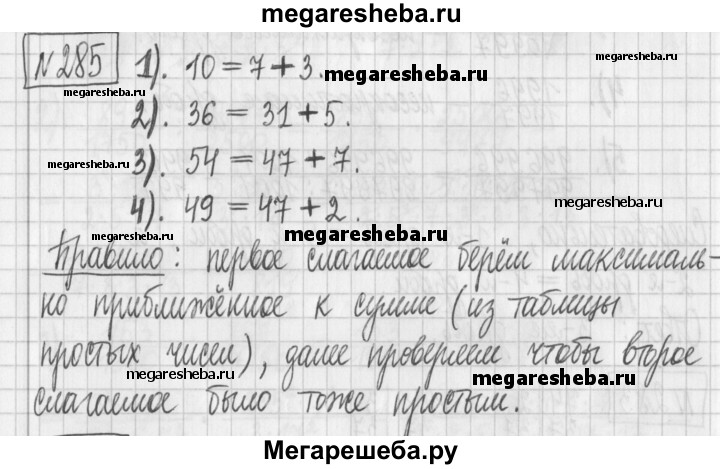 megaresheba.ru
№285 1). 10 = 7 + 3. megaresheba.ru
megaresheba.ru
megaresheba.ru
2). 36 = 31 + 5.
megaresheba.ru 3). 54 = 47 + 7.
4). 49 = 47 + 2. megaresheba.ru
megaresheba.ru
Правило: первое слагаемое берём максималь-
но приближённое к сумме (из таблицы
простых чисел), далее проверяем чтобы второе
megaresheba.ru megaresheba.ru
слагаемое было тоже простым.
Мегарешеба.ру